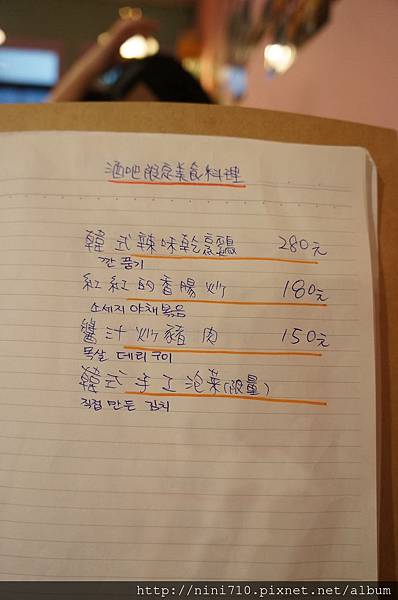 酒吧限定美食料理
韓式辣味乾烹雞 280元
깐풍기
紅紅的香腸炒 180元
소세지 야채볶음
醬汁炒豬肉 150元
목살 데리구이
韓式手工泡菜(限量)
직접 만든 김치
http://nini710.pixnet.net/album